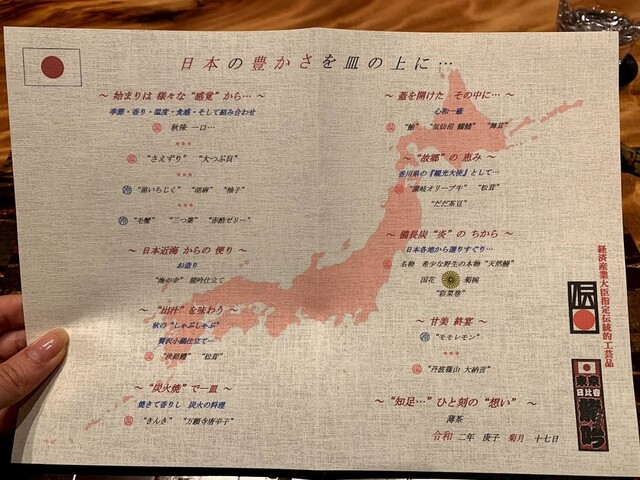 日本の豊かさを皿の上に…
～ 始まりは 様々な "感覚" から… ～
季節・香り・温度・食感・そして組み合わせ
温 秋味 一口…
***
温 "さえずり" "大つぶ貝"
***
冷 "黒いちじく" "胡麻" "柚子"
***
冷 "毛蟹" "三つ葉" "赤酢ゼリー"
～ 日本近海 からの 便り ～
お造り
"海の幸" 龍吟仕立て
～ "出汁" を味わう ～
秋の "しゃぶしゃぶ"
贅沢小鍋仕立て…
温 "淡路鱧" "松茸"
～ "炭火焼" で一皿 ～
焼きて香りし 炭火の料理
温 "きんき" "万願寺唐辛子"
～ 蓋を開けた その中に… ～
心和一椀
温 "鮑" "気仙沼 鱶鰭" "舞茸"
～ "故郷" の 恵み ～
香川県の『観光大使』として…
温 "讃岐オリーブ牛" "松茸"
"だだ茶豆"
～ 備長炭 "炎" の ちから ～
日本各地から選りすぐり…
温 名物 希少な野生の本物 "天然鰻"
国花 菊椀
"彩菜巻"
～ 甘美 終宴 ～
冷 "モモレモン"
***
温 "丹波篠山 大納言"
～ "知足…" ひと刻の "想い" ～
薄茶
令和 二年 庚子 菊月 十七日
経済産業大臣指定伝統的工芸品
伝
東京
日比谷
龍吟